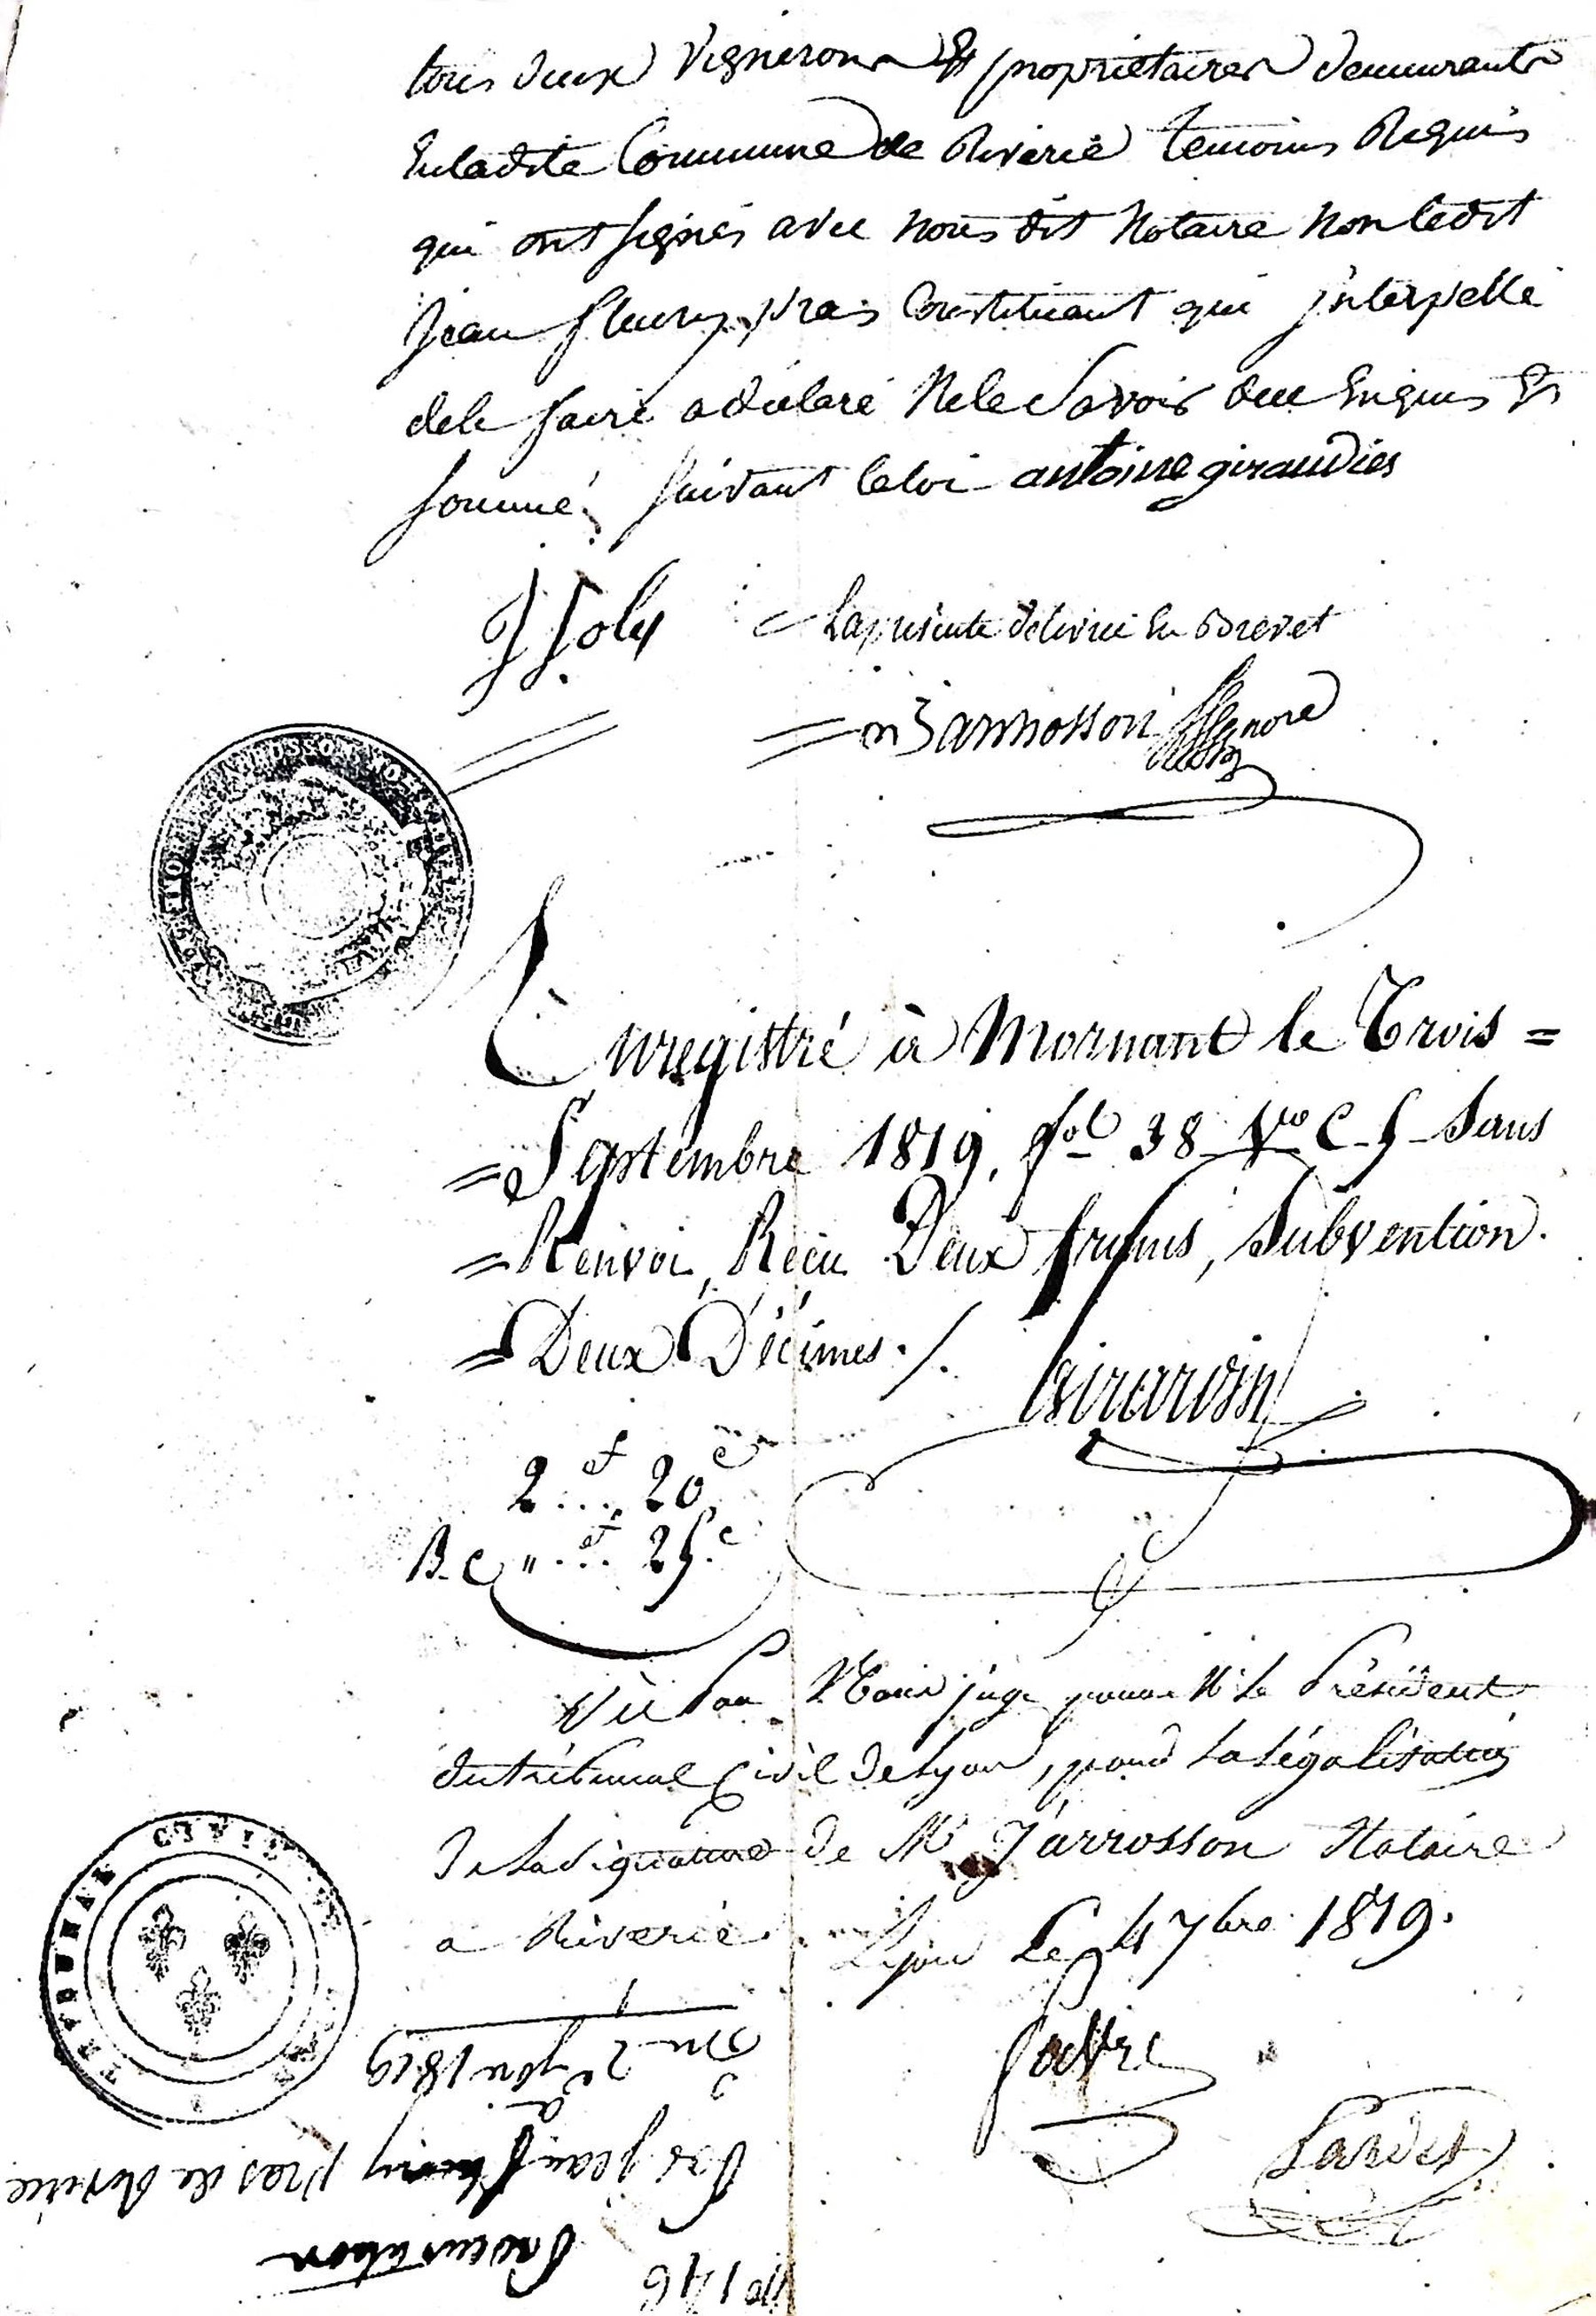 tous deux Vignerons Et propriétaires demeurants
En ladite Commune de Riverie temoins Requis
qui ont signés avec nous dit Notaire Non ledit
Jean fleury pras Constituant qui jnterpellé
dele faire a déclaré Nele Savoir dee Enquis Et
sommé suivant laloi antoine giraudier
J Joly
La présente délivrée En Brevet
Jarrosson
Enregistré à Mornant le Trois =
= Septembre 1819, fol 38 Vo C. 5 Sans
= Renvoi, Reçu Deux francs, Subvention.
= Deux Décimes ./.
Girardin
2 f 20 c
B. C " f 25 c
Vu par Nous juge pour Mr le Président
du tribunal Civil de Lyon, pour la légalisation
De la signature de Mr Jarrosson Notaire
a Riverie. Lyon Le 4 7bre 1819.
Favre
TRIBUNAL CIVIL
No 146
Procuration
Par jean fleury pras de Riverie
à
Du 2 7bre 1819